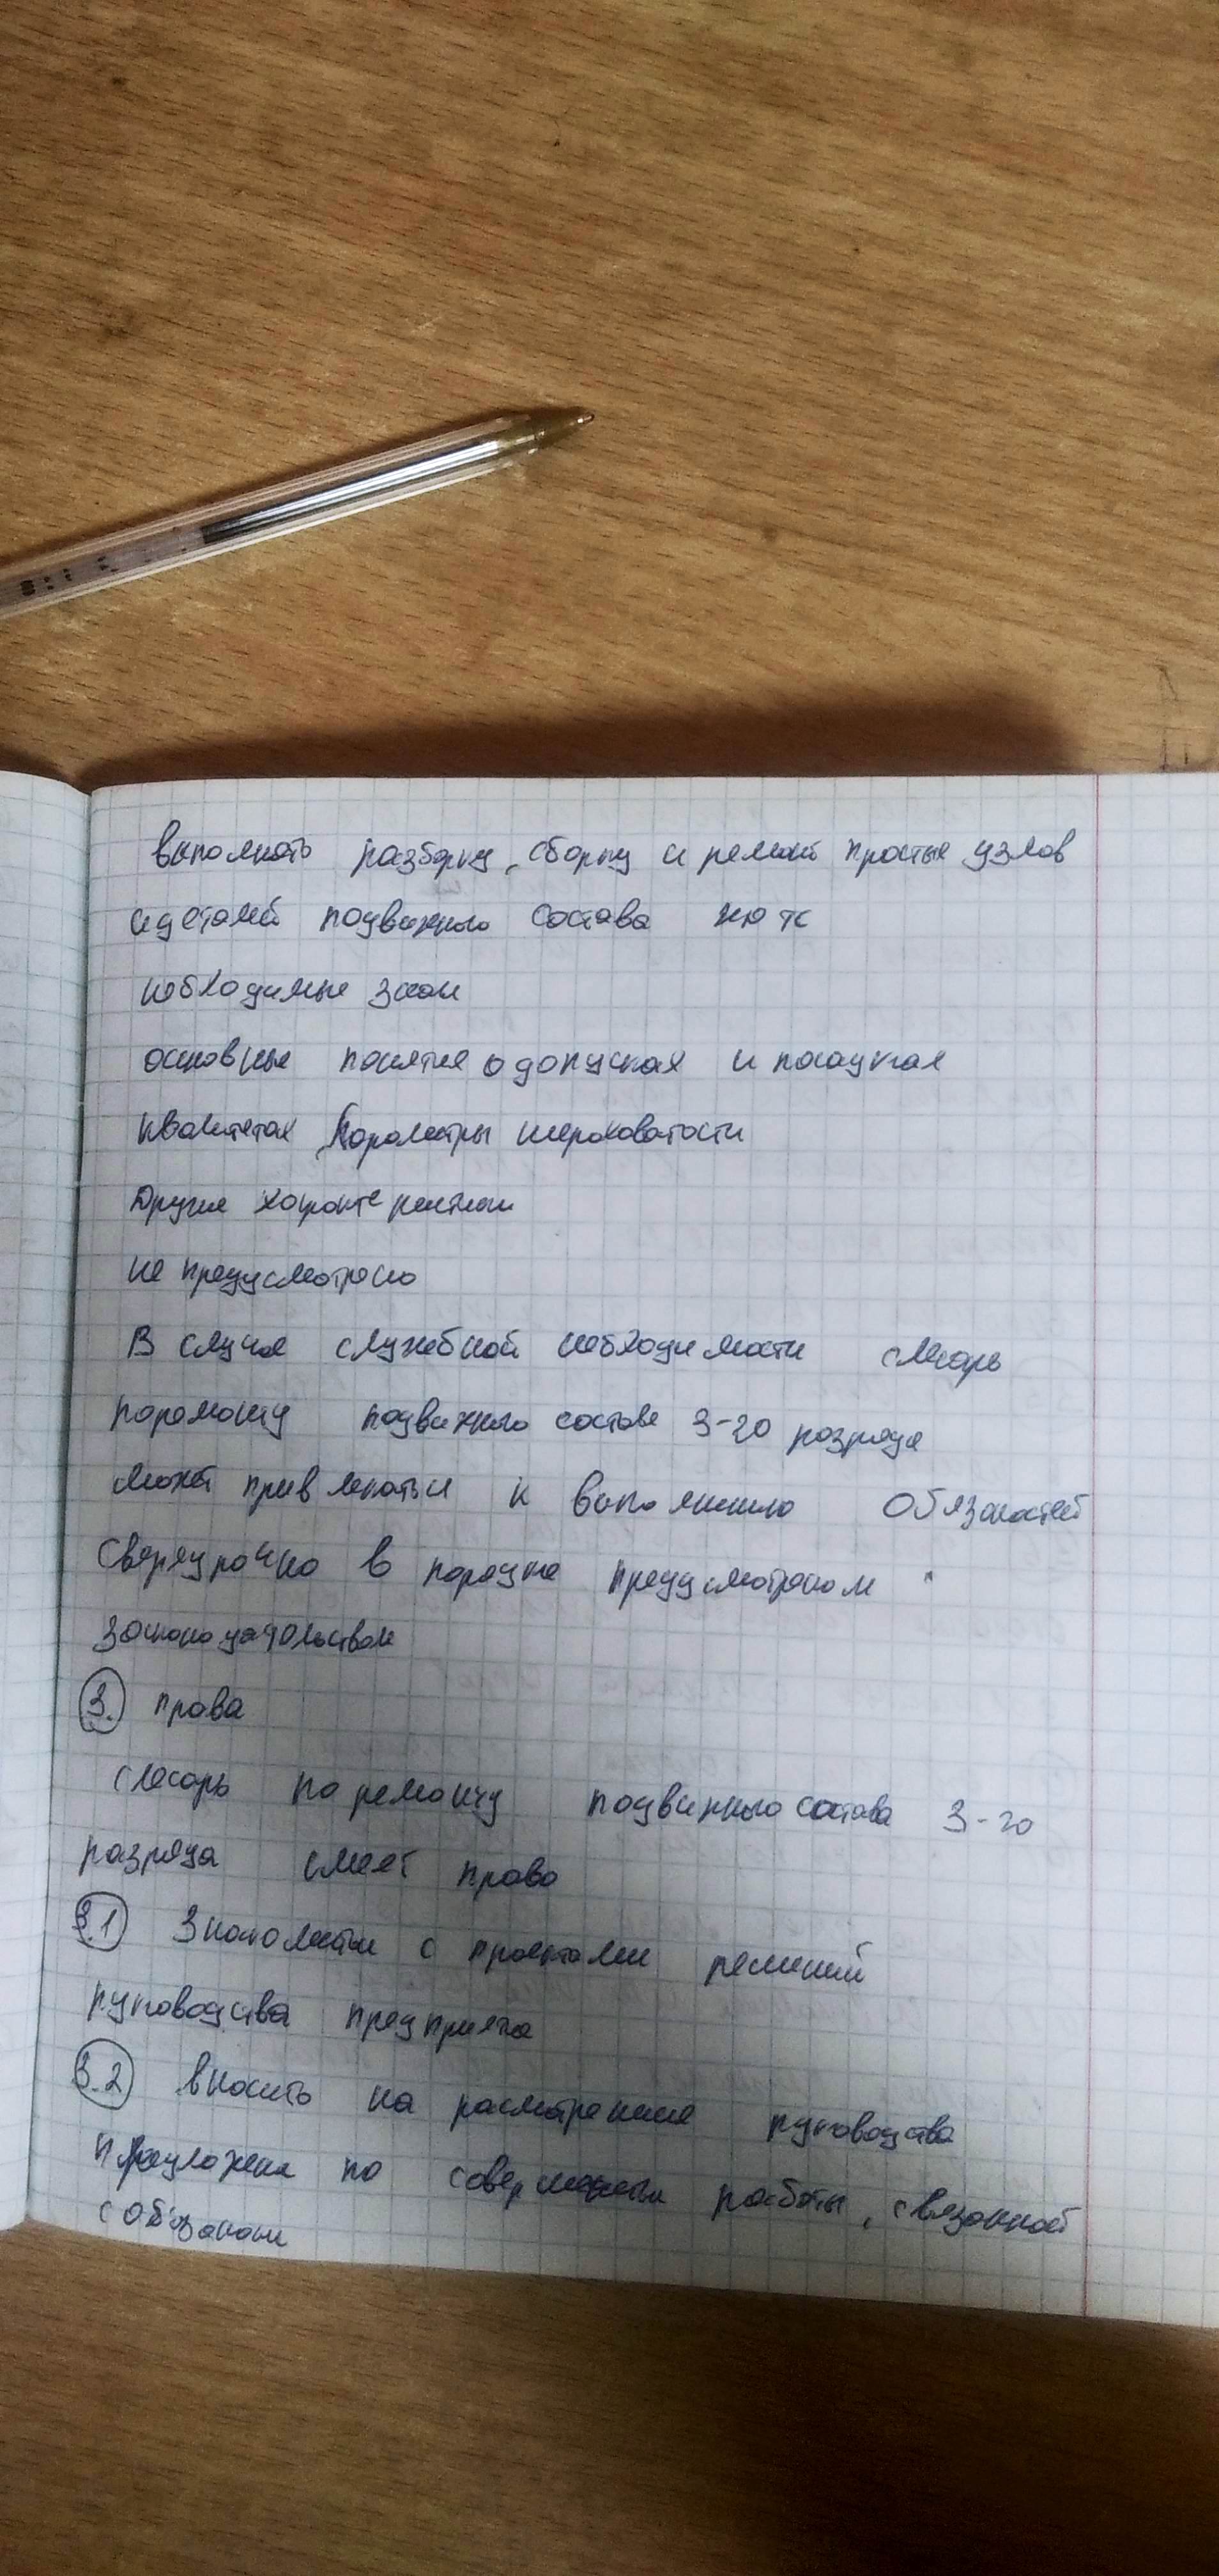 выполнять разборку, сборку и ремонт простые узлов
и деталей подвижного состава
необходимые знан
основные понятия о допусках и посадках
квалитетах Параметры шероховатости
Другие характеристики
не предусмотрено
В случае служебной необходимости слесарь
поремонту подвижного состава 3-го разряда
может привлекаться к выполнению обязаностей
Сверхурочно в порядке предусмотреном
законодательством
3. права
слесарь по ремонту подвижного состава 3-го
разряда имеет право
3.1 Знакомится с проектами решений
руководства предприятия
3.2 вносить на расмотрение руководства
по работы, связанной
с